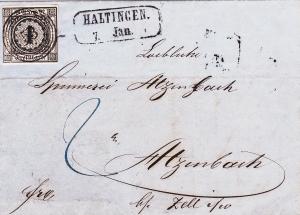 1
HALTINGEN.
7. Jan.
Löbliche
Spinnerei Atzenbach
in
Atzenbach
frco
bp. Zell i/w